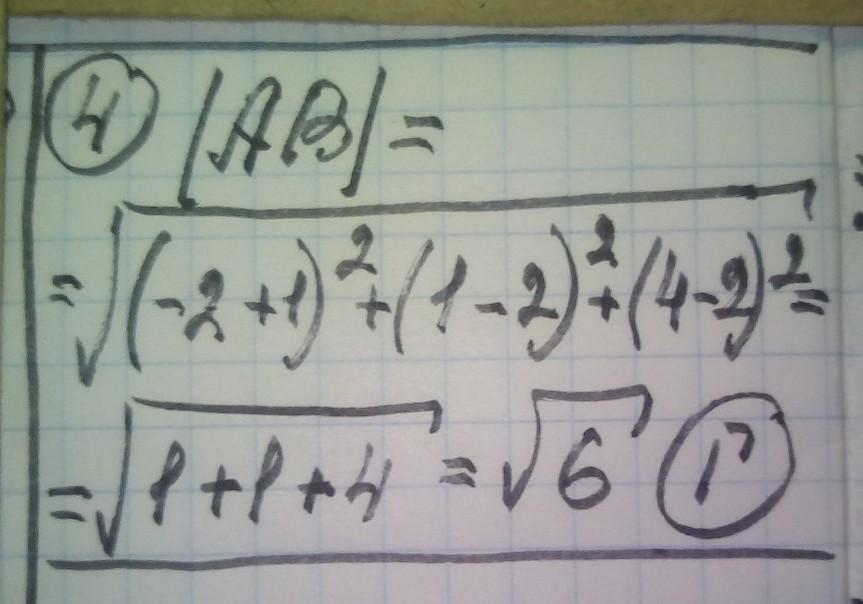 ④ |AB| =
= √((-2+1)² + (1-2)² + (4-2)²) =
= √(1+1+4) = √6 Ⓖ